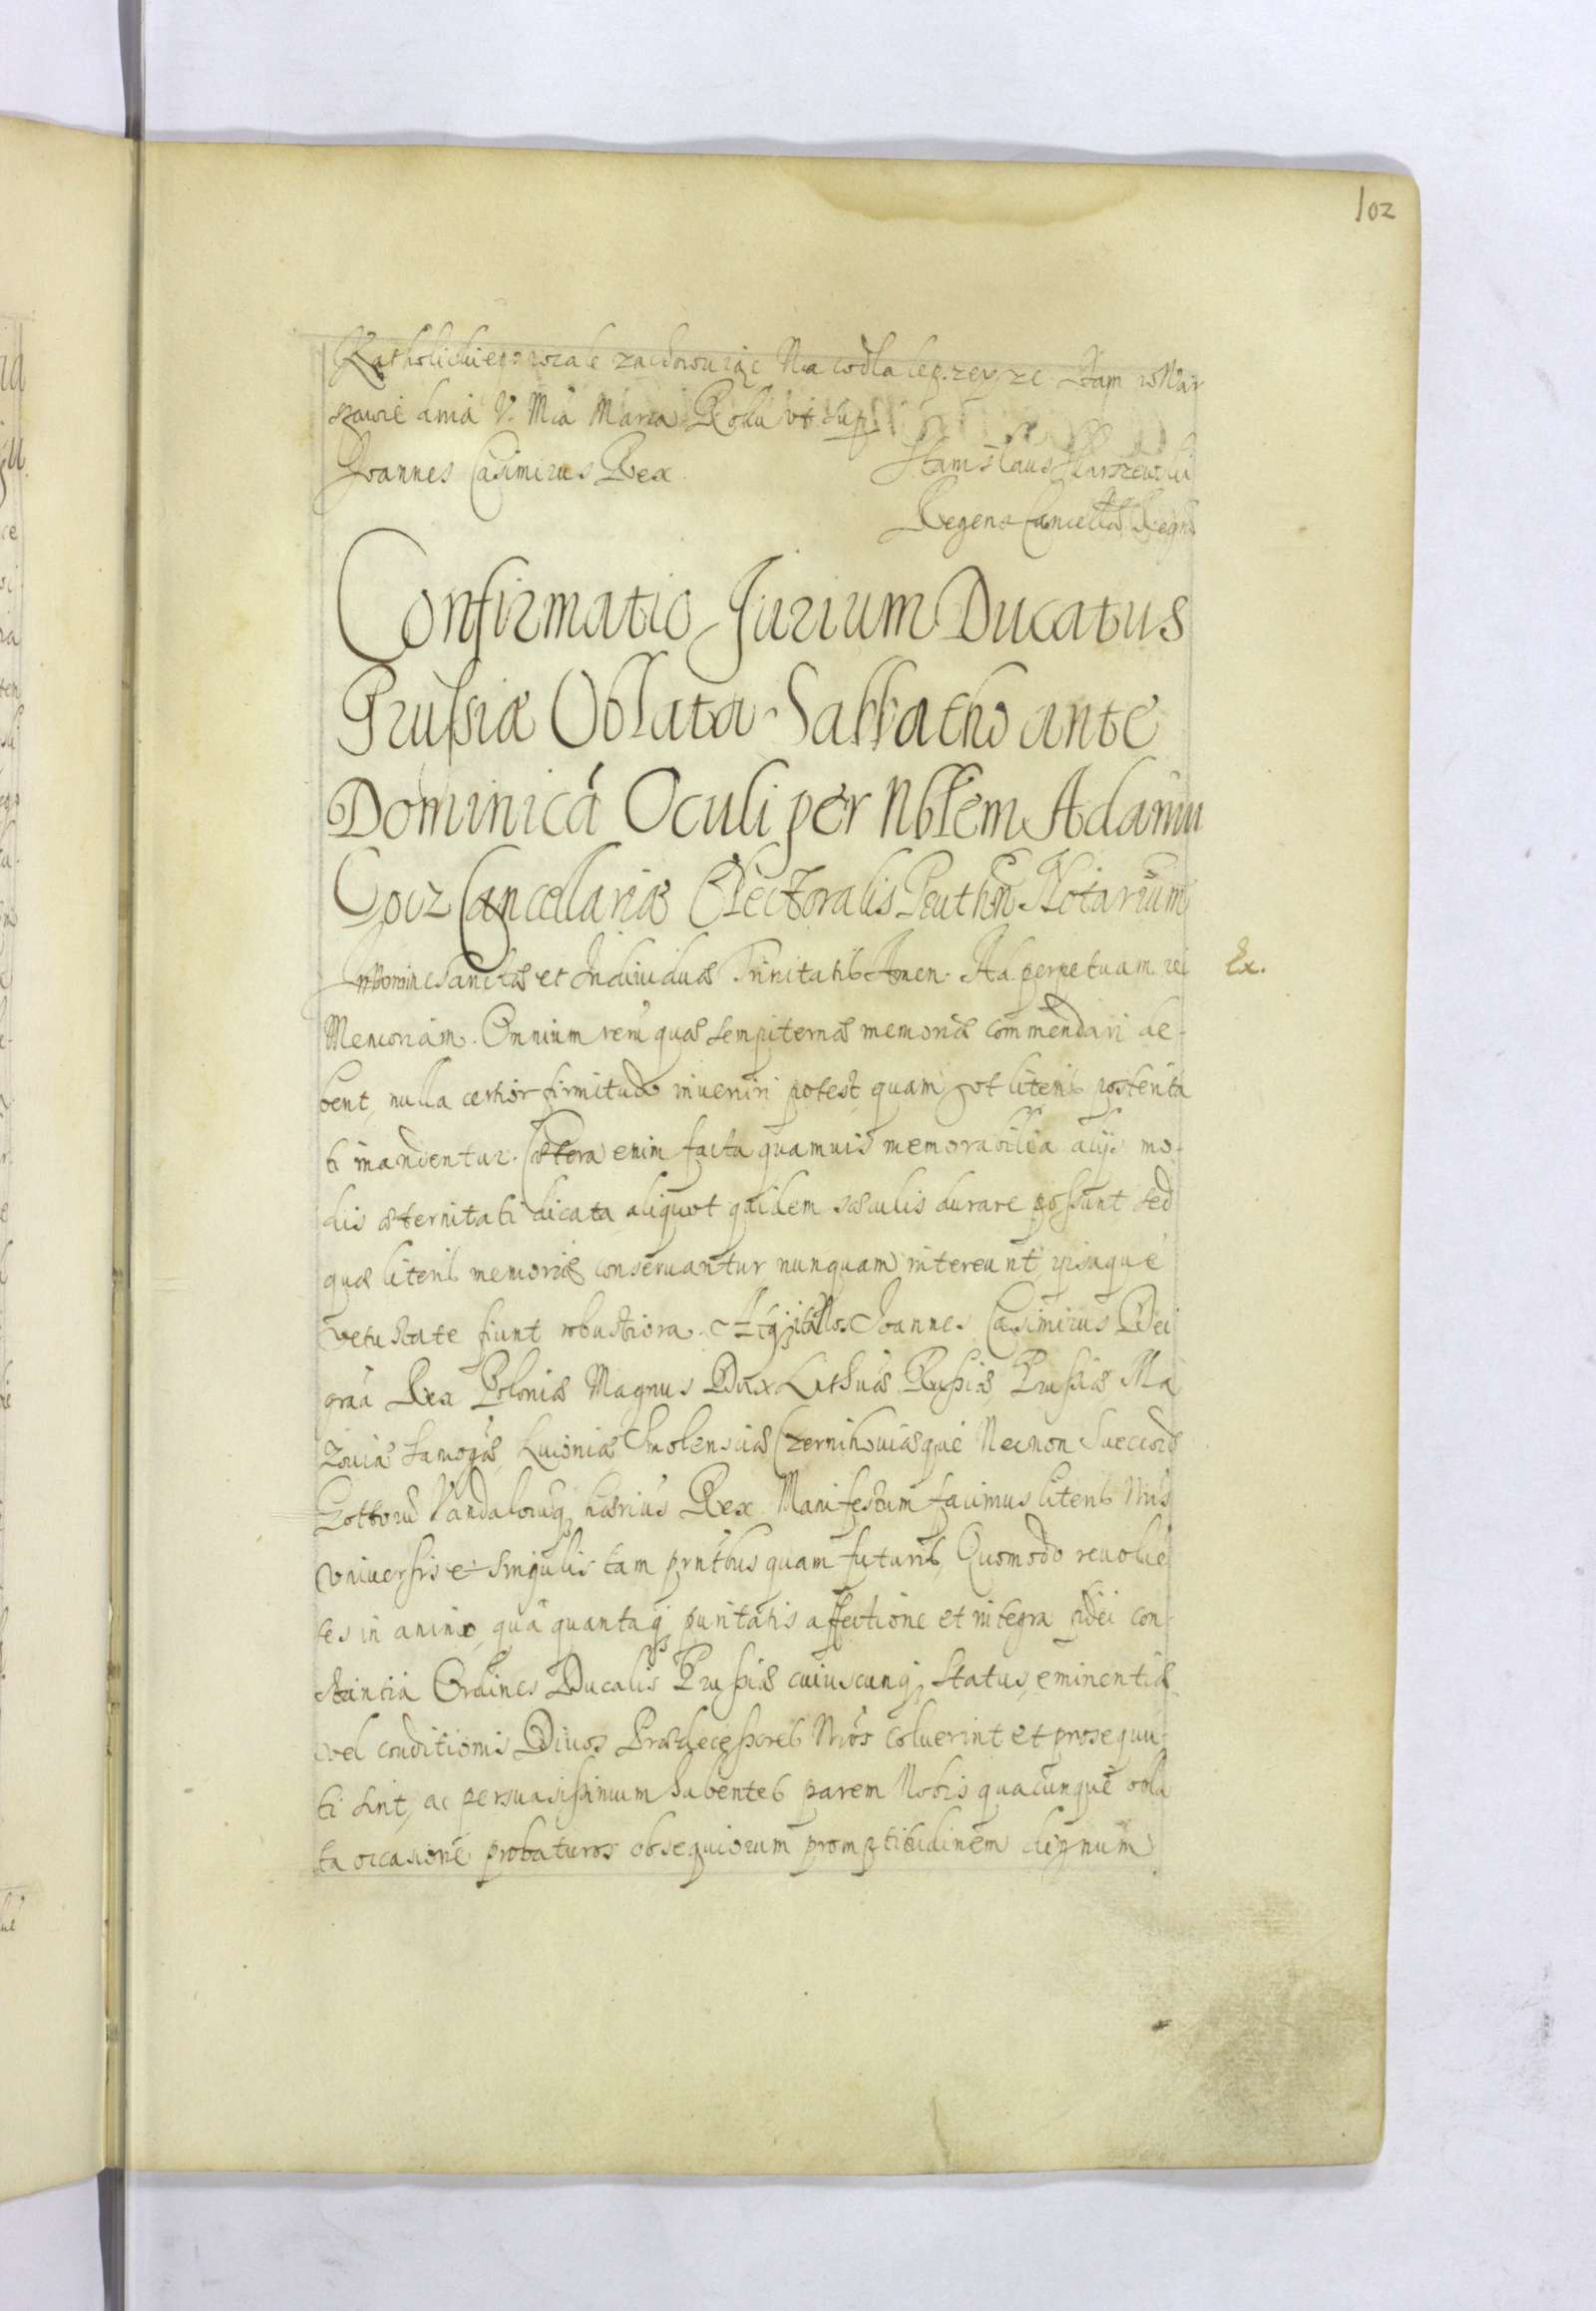 102
Katholickiego wcale zachowuiąc Na co dla lepszey etc Dam w War
szawie dnia V. Mca Marca Roku vt sup
Joannes Casimirus Rex Stanislaus
Regens Cancellæ Regni
Confirmatio Jurium Ducatus
Prussiæ Oblata Sabbatho ante
Dominicā Oculi per Nblem Adamu
Cancellariæ Electoralis Notarium
In Nomine Sanctæ et Indiuiduæ Trinitatis Amen. Ad perpetuam rei Ex.
Memoriam. Omnium reru quæ sempiternæ memoriæ commendari de-
bent, nulla certior firmitudo inueniri potest, quam vt literis posterita
ti mandentur. Cætera enim facta quamuis memorabilia alijs mo-
dis æternitati dicata aliquot quidem sæculis durare possunt sed
quæ literis memoriæ conseruantur nunquam intereunt, ipsaque
vetustate fiunt robustiora. Nos Joannes Casimirus Dei
graa Rex Poloniæ Magnus Dux Lithuæ Russiæ, Prussiæ Ma
zouiæ Samogæ, Liuoniæ Smolensciæ Czernihouiæque Necnon Suecor
Gottoru Vandaloruq hærius Rex. Manifestum facimus literis Nris
vniuersis et singulis tam prntbus quam futuris, Quomodo reuolue
tes in animo, qua quantaq puritatis affectione et integra fidei con-
stantia Ordines Ducalis Prussiæ cuiuscunq status, eminentiæ
vel conditionis Diuos Prædecessores Nros coluerint et prosequu-
ti sint, ac persuasissimum habentes parem Nobis quacunque obla
ta occasione probaturos obsequiorum promptitudinem dignum